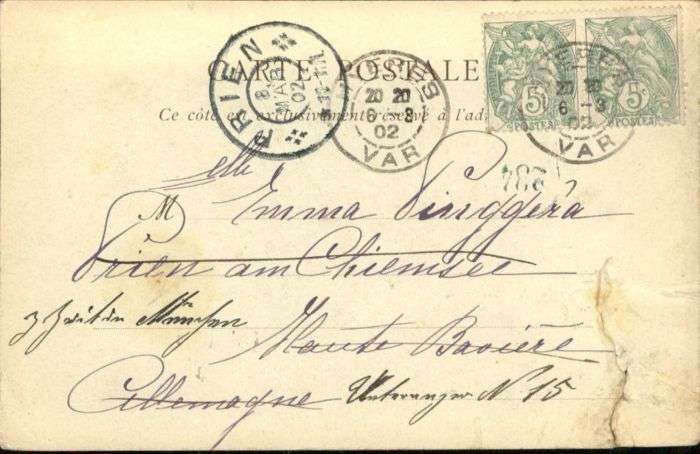 CARTE POSTALE
Ce côté est exclusivement réservé à l'ad
PRIEN
8
MAR
02
HYERES
20 20
6 -3
02
VAR
HYERES
20 20
6 -3
02
VAR
5c 5c
POSTES POSTES
284
Mlle
Emma Pinggéra
Prien am Chiemsee
z Zeit in München
Haute Bavière
Allemagne Unteranger N 15